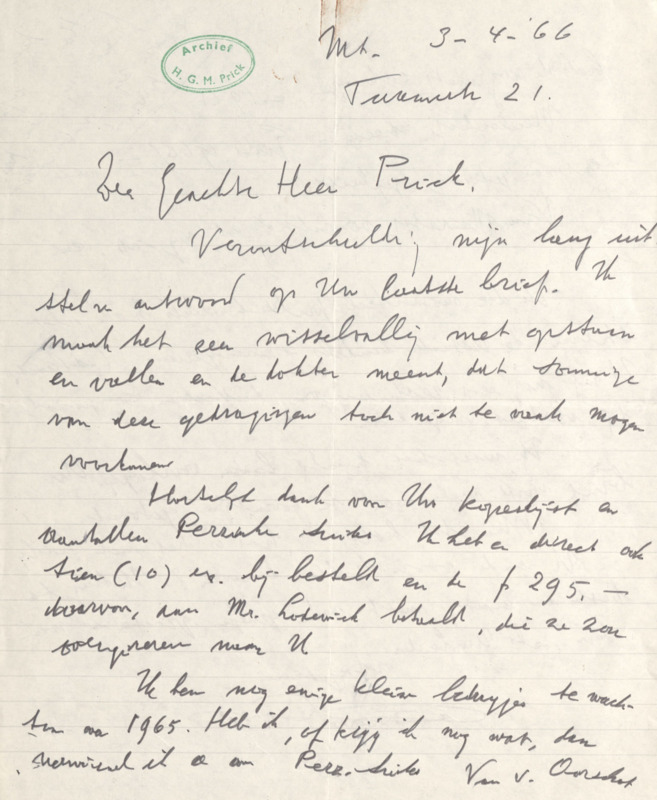 Archief
H. G. M. Prick
Mt. 3-4-'66
21.
Zeer Geachte Heer Prick,
Verontschuldig mijn lang uit
stel van antwoord op Uw laatste brief. Ik
maak het zeer wisselvallig met opstaan
en vallen en de dokter meent, dat sommige
van deze gedragingen toch niet te vaak mogen
voorkomen
Hartelijk dank voor Uw koperslijst en
aantallen Perzische Ik heb er direct ook
tien (10) ex. bij besteld en de f 295,—
daarvan, aan Mr. Lodewick betaald, die ze zou
overgireren naar U
Ik heb nog enige kleine te wach-
ten van 1965. Heb ik, of krijg ik nog wat, dan
ik ze aan Perz. Van v. Oorschot